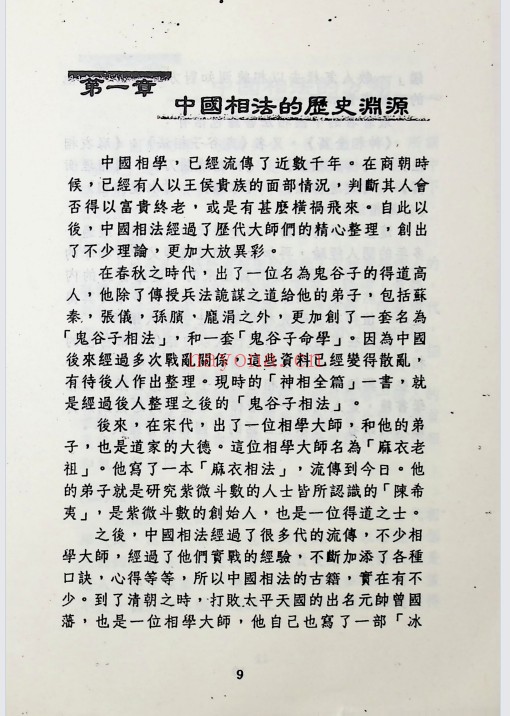 第一章
中國相法的歷史淵源
中國相學，已經流傳了近數千年。在商朝時
候，已經有人以王侯貴族的面部情況，判斷其人會
否得以富貴終老，或是有甚麼橫禍飛來。自此以
後，中國相法經過了歷代大師們的精心整理，創出
了不少理論，更加大放異彩。
在春秋之時代，出了一位名為鬼谷子的得道高
人，他除了傳授兵法詭謀之道給他的弟子，包括蘇
秦，張儀，孫臏，龐涓之外，更加創了一套名為
「鬼谷子相法」，和一套「鬼谷子命學」。因為中國
後來經過多次戰亂關係，這些資料已經變得散亂，
有待後人作出整理。現時的「神相全篇」一書，就
是經過後人整理之後的「鬼谷子相法」。
後來，在宋代，出了一位相學大師，和他的弟
子，也是道家的大德。這位相學大師名為「麻衣老
祖」。他寫了一本「麻衣相法」，流傳到今日。他
的弟子就是研究紫微斗數的人士皆所認識的「陳希
夷」，是紫微斗數的創始人，也是一位得道之士。
之後，中國相法經過了很多代的流傳，不少相
學大師，經過了他們實戰的經驗，不斷加添了各種
口訣，心得等等，所以中國相法的古籍，實在有不
少。到了清朝之時，打敗太平天國的出名元帥曾國
藩，也是一位相學大師，他自己也寫了一部「冰
9